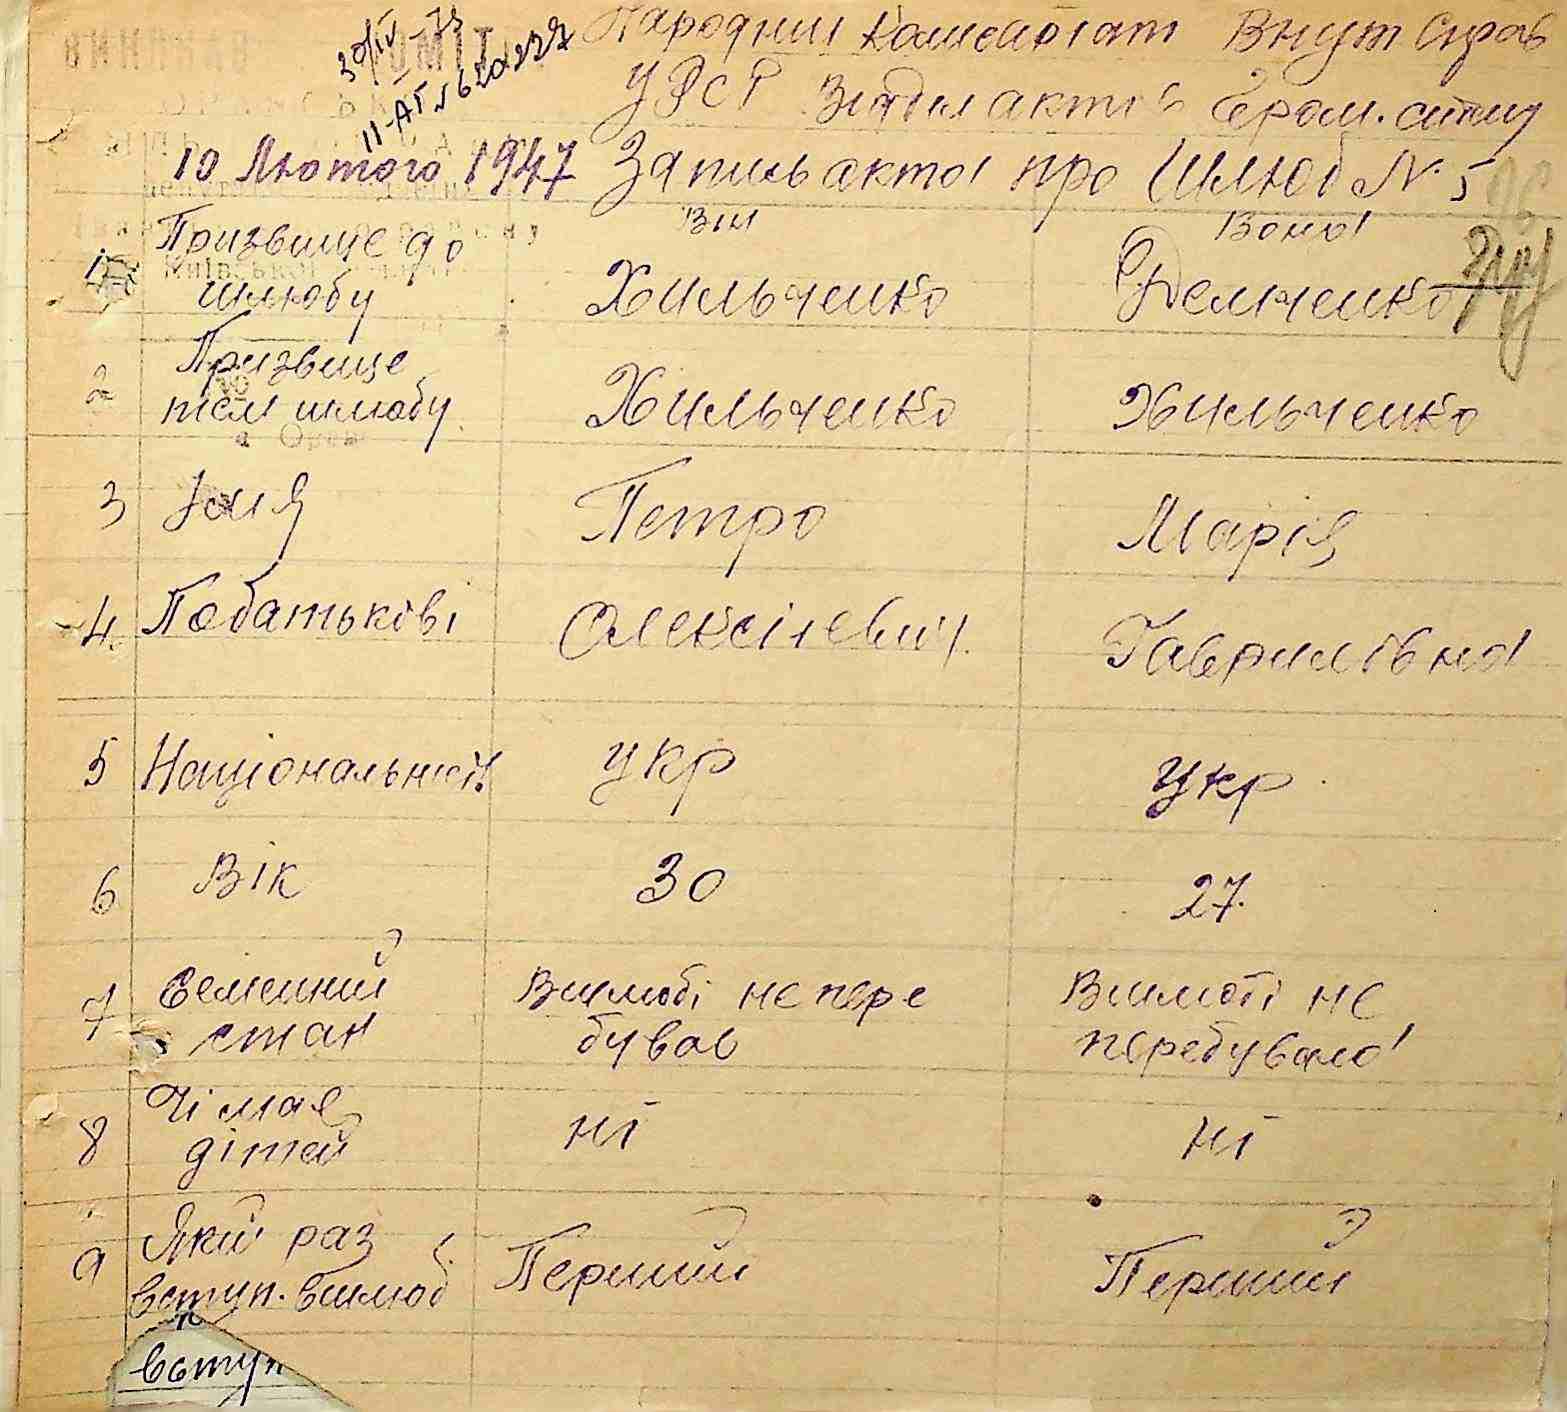 30/IV-75
II-АГ №620227
Народний Комісаріат Внут Справ
УРСР Відділ актів Гром. стану
10 Лютого 1947 Запись акта про Шлюб N. 5
Він Вона
1 Призвище до шлюбу Хильченко Демченко
2 Призвище після шлюбу Хильченко Хильченко
3 Імя Петро Марія
4 Побатькові Олексієвич Гаврилівна
5 Національність укр укр
6 Вік 30 27
7 Семейний стан Вшлюбі не перебував Вшлюбі не перебувала
8 Чі має дітей ні ні
9 Який раз вступ. вшлюб Перший Перший
вступ